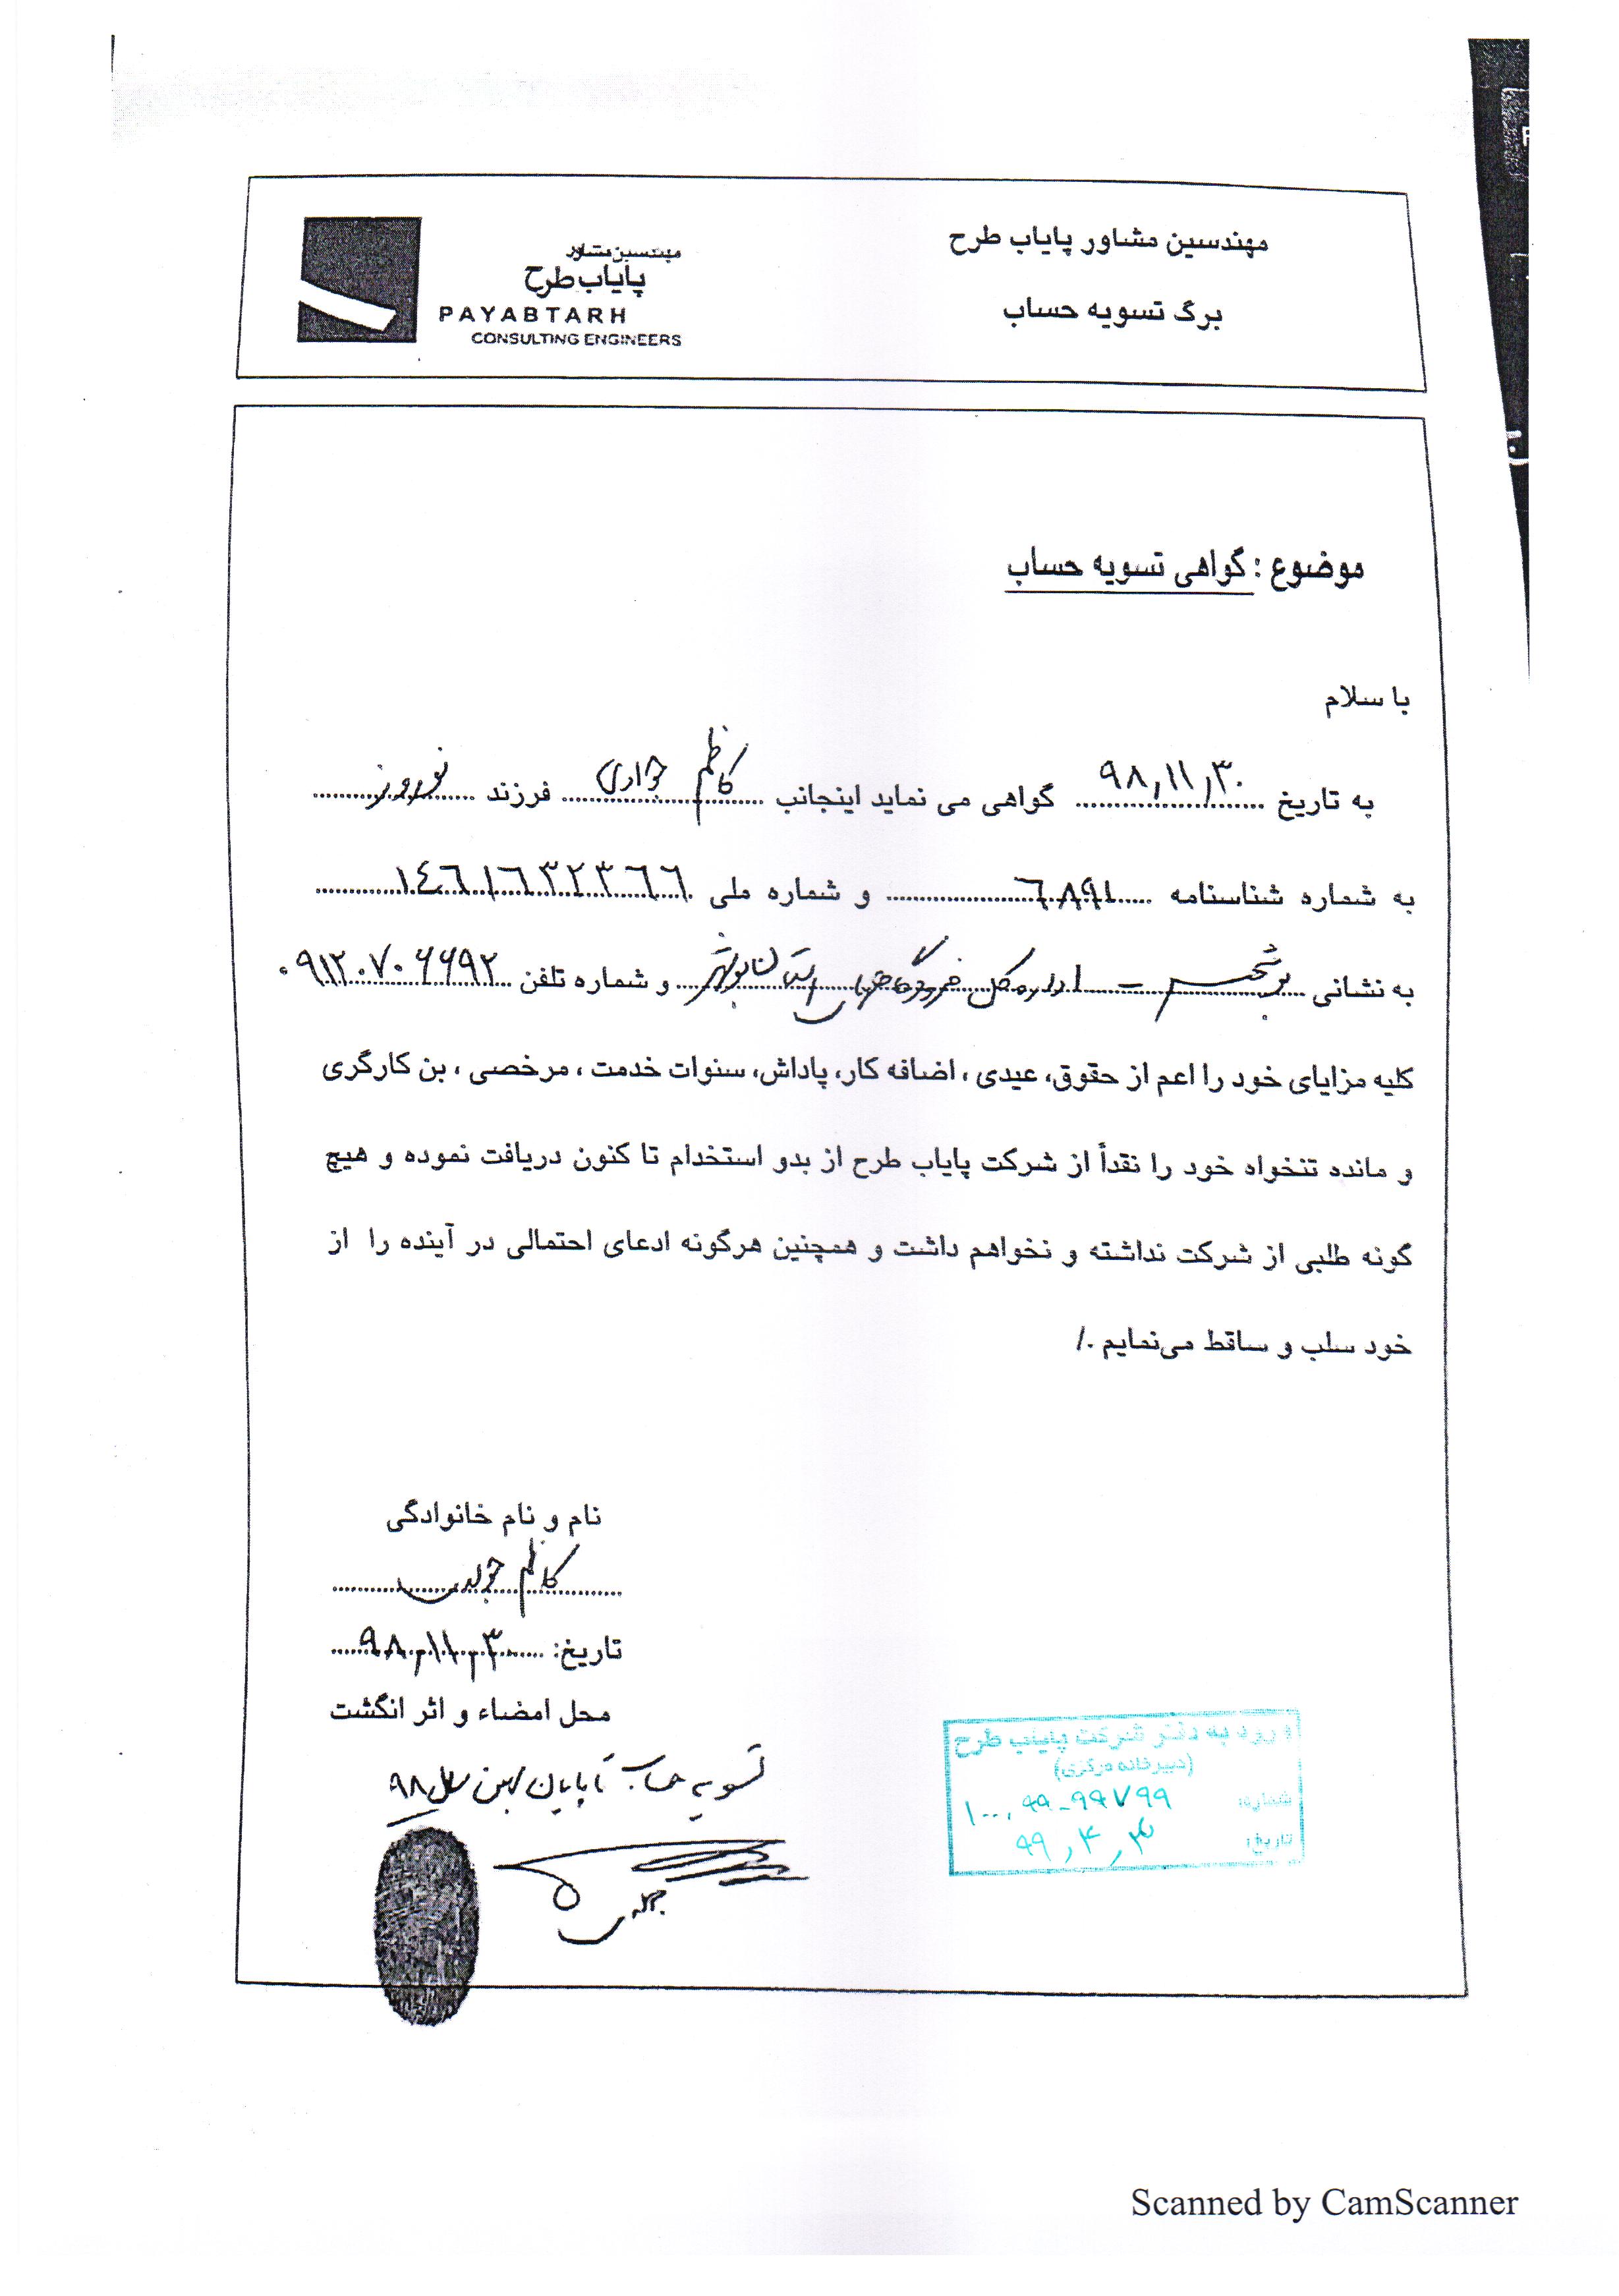 مهندسین مشاور پایاب طرح
برگ تسویه حساب
مهندسین مشاور
پایاب طرح
PAYABTARH
CONSULTING ENGINEERS
موضوع : گواهی تسویه حساب
با سلام
به تاریخ ۹۸٫۱۱٫۳۰ گواهی می نماید اینجانب کاظم جوادی فرزند نوروز
به شماره شناسنامه ۶۸۹۱ و شماره ملی ۱۴۶۱۶۳۲۳۶۶
به نشانی - اداره کل فرودگاه های استان بوشهر و شماره تلفن ۰۹۱۲۰۷۰۶۶۹۲
کلیه مزایای خود را اعم از حقوق، عیدی ، اضافه کار، پاداش، سنوات خدمت ، مرخصی ، بن کارگری
و مانده تنخواه خود را نقداً از شرکت پایاب طرح از بدو استخدام تا کنون دریافت نموده و هیچ
گونه طلبی از شرکت نداشته و نخواهم داشت و همچنین هرگونه ادعای احتمالی در آینده را از
خود سلب و ساقط می‌نمایم ./
نام و نام خانوادگی
کاظم جوادی
تاریخ: ۹۸٫۱۱٫۳۰
محل امضاء و اثر انگشت
تسویه حساب تا پایان بهمن سال ۹۸
ورود به دفتر شرکت پایاب طرح
(دبیرخانه مرکزی)
شماره: ۱۰۰٫۹۹-۹۹۷۹۹
تاریخ: ۹۹٫۴٫۳
Scanned by CamScanner